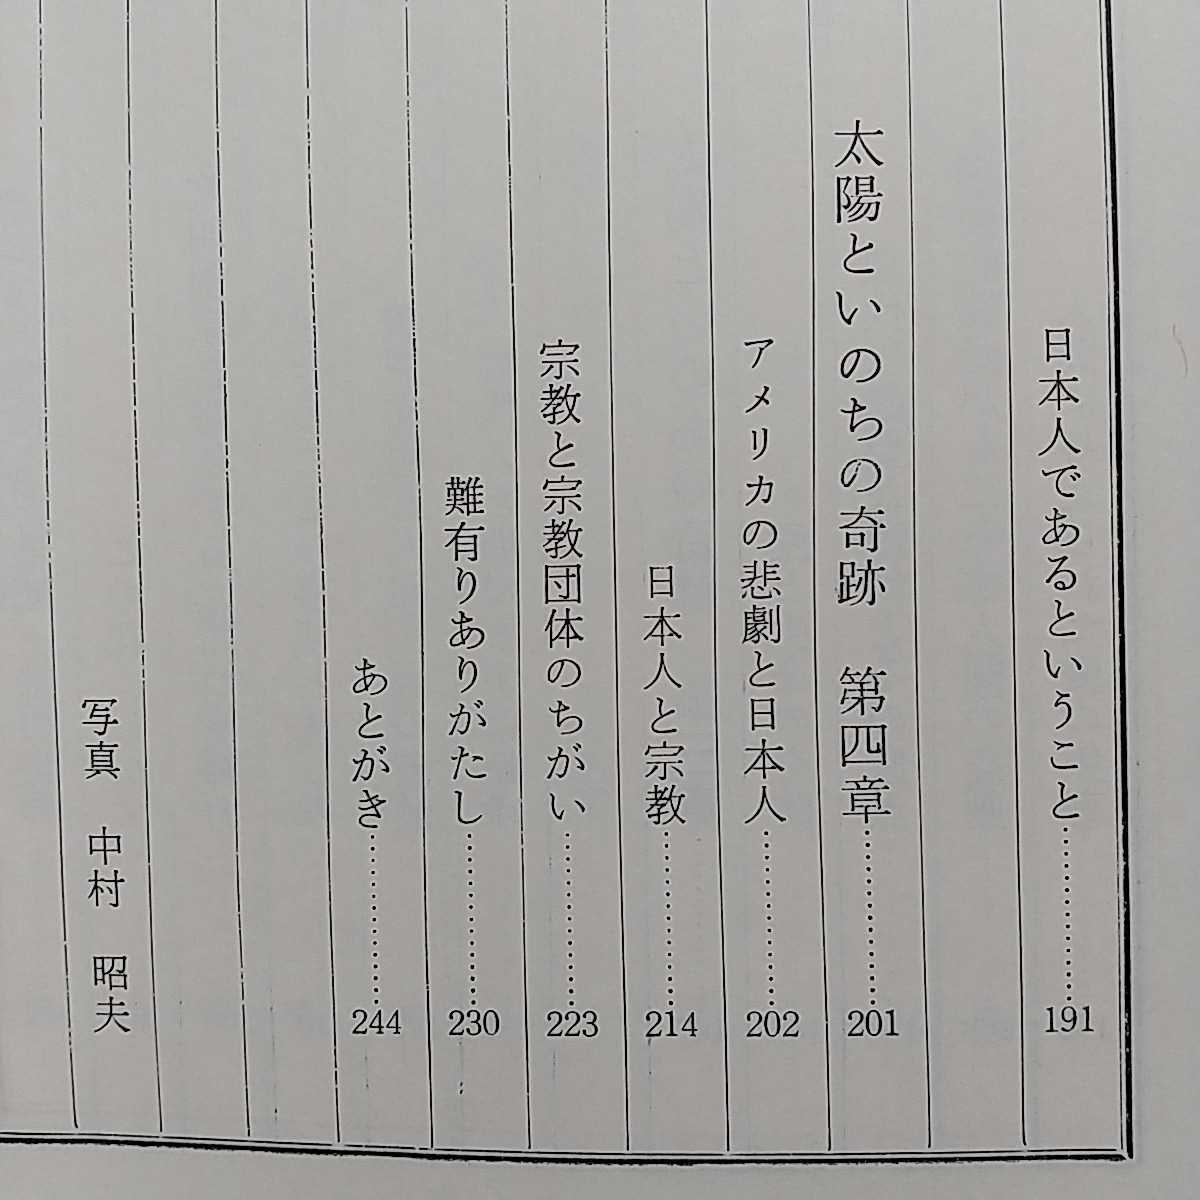 日本人であるということ…………191
太陽といのちの奇跡　第四章…………201
アメリカの悲劇と日本人…………202
日本人と宗教…………214
宗教と宗教団体のちがい…………223
難有りありがたし…………230
あとがき…………244
写真　中村　昭夫